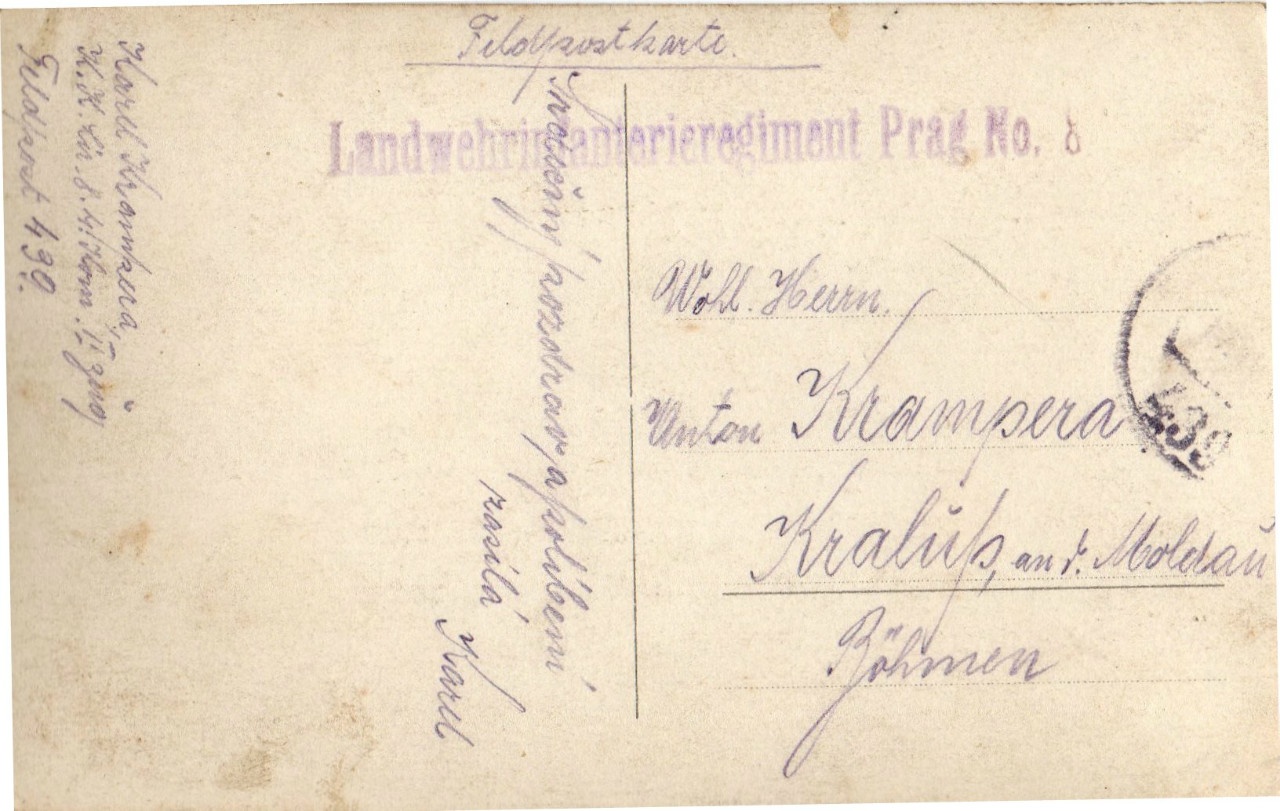 Feldpostkarte.
Landwehrinfanterieregiment Prag No. 8
Wohl. Herrn.
Anton Krampera
Kralup, an d. Moldau
Böhmen
439
Srdečný pozdrav, a políbení
zasílá
Karel
Karel Krampera,
K. K. Lir. 8. 4. Kom. II zug
Feldpost 439.